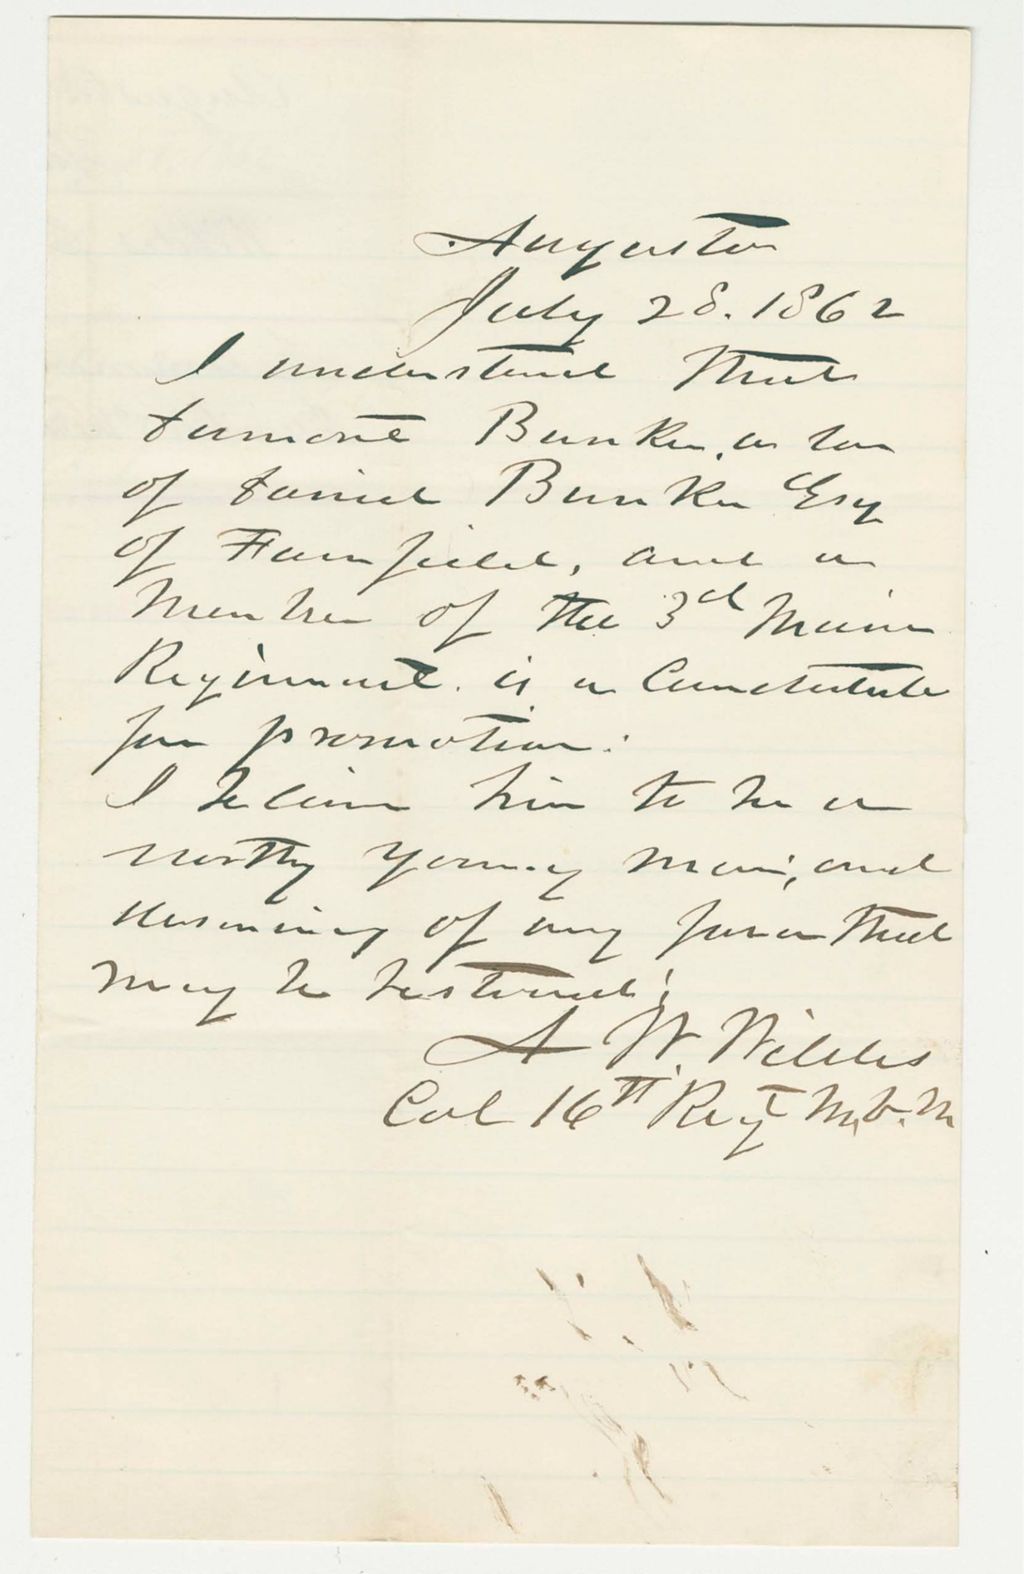 Augusta
July 28. 1862
I understand that
Bunker, a son
of Daniel Bunker Esq
of Fairfield, and a
Member of the 3d Maine
Regiment. is a Candidate
for promotion.
I believe him to be a
worthy young man, and
deserving of any favor that
may be bestowed;
A W. Wildes
Col 16th Regt M. V. M